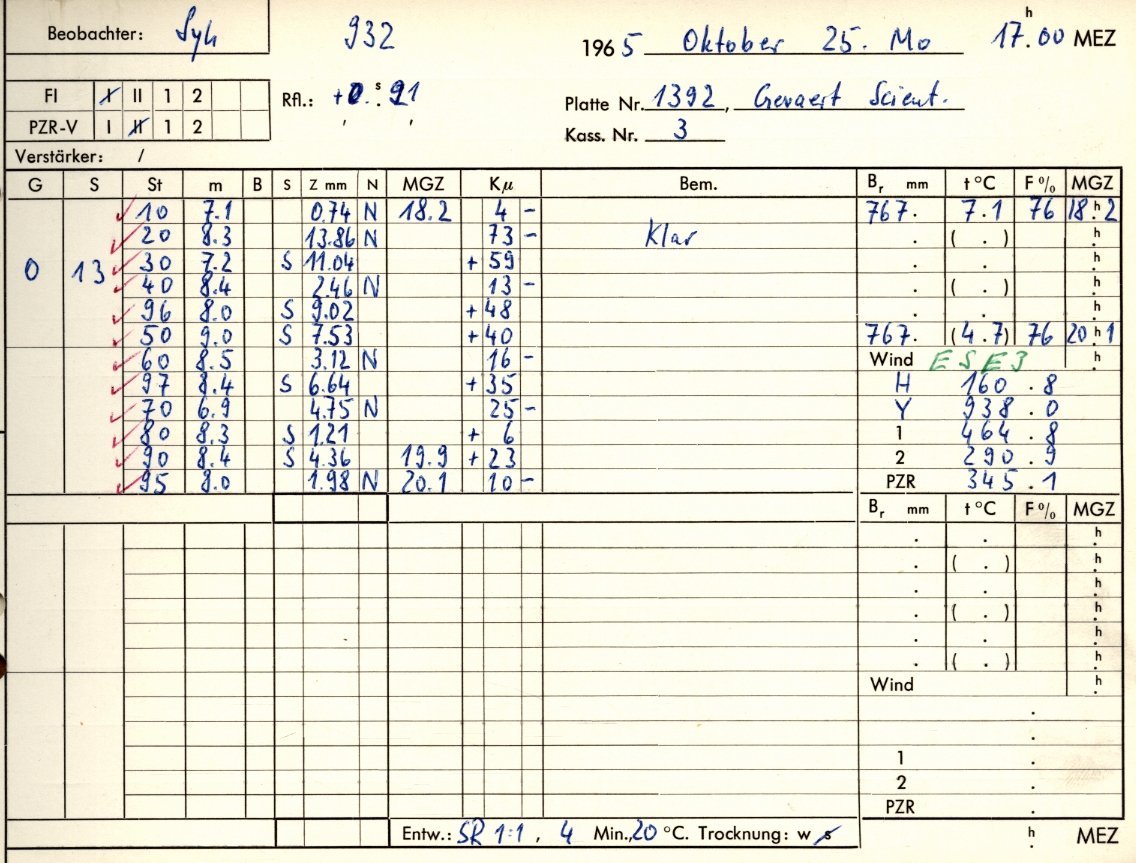 Beobachter: Syh 932 1965 Oktober 25. Mo 17.h00 MEZ
FI X II 1 2 Rfl.: +0.s91 Platte Nr. 1392, Gevaert Scient.
PZR-V I II 1 2 Kass. Nr. 3
Verstärker: /
G S St m B S Z mm N MGZ Kμ Bem. Br mm t °C F % MGZ
10 7.1 0.74 N 18.2 4 - 767. 7.1 76 18.h2
20 8.3 13.86 N 73 - Klar . ( . ) h
0 13 30 7.2 S 11.04 + 59 . . h
40 8.4 2.46 N 13 - . ( . ) h
96 8.0 S 9.02 + 48 . . h
50 9.0 S 7.53 + 40 767. (4.7) 76 20.h1
60 8.5 3.12 N 16 - Wind ESE3 h
97 8.4 S 6.64 + 35 H 160.8
70 6.9 4.75 N 25 - Y 938.0
80 8.3 S 1.21 + 6 1 464.8
90 8.4 S 4.36 19.9 + 23 2 290.9
95 8.0 1.98 N 20.1 10 - PZR 345.1
Br mm t °C F % MGZ
. . h
. ( . ) h
. . h
. ( . ) h
. . h
. ( . ) h
Wind h
.
.
1 .
2 .
PZR .
Entw.: SR 1:1, 4 Min., 20 °C. Trocknung: w s h MEZ